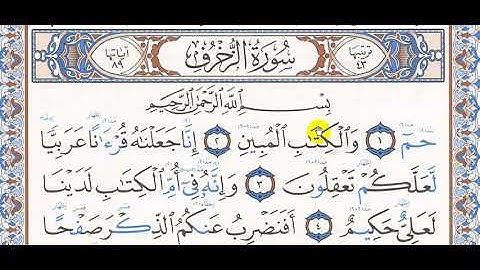 ترتيبها ٤٣ سُورَةُ الزُّخْرُفِ آياتها ٨٩
بِسْمِ ٱللَّهِ ٱلرَّحْمَٰنِ ٱلرَّحِيمِ
حمٓ ١ وَٱلْكِتَٰبِ ٱلْمُبِينِ ٢ إِنَّا جَعَلْنَٰهُ قُرْءَٰنًا عَرَبِيًّا
لَّعَلَّكُمْ تَعْقِلُونَ ٣ وَإِنَّهُۥ فِىٓ أُمِّ ٱلْكِتَٰبِ لَدَيْنَا
لَعَلِىٌّ حَكِيمٌ ٤ أَفَنَضْرِبُ عَنكُمُ ٱلذِّكْرَ صَفْحًا